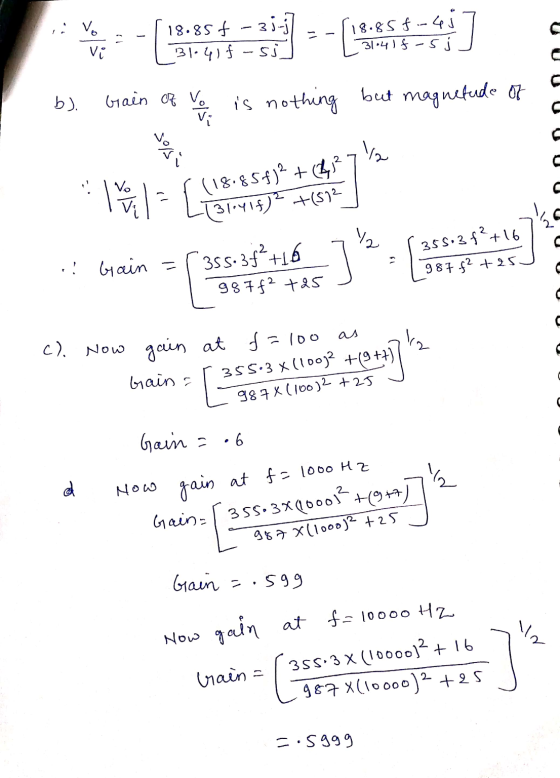 ∴ Vo/Vi = - [18.85f - 3j-j / 31.41f - 5j] = - [18.85f - 4j / 31.41f - 5j]
b). Gain of Vo/Vi is nothing but magnetude of
Vo/Vi
∵ |Vo/Vi| = [(18.85f)² + (4)² / (31.41f)² + (5)²]^1/2
∴ Gain = [355.3f² + 16 / 987f² + 25]^1/2 = [355.3f² + 16 / 987f² + 25]^1/2
c). Now gain at f = 100 as
Gain = [355.3 × (100)² + (9+7) / 987 × (100)² + 25]^1/2
Gain = .6
d Now gain at f = 1000 Hz
Gain = [355.3 × (1000)² + (9+7) / 987 × (1000)² + 25]^1/2
Gain = .599
Now gain at f = 10000 Hz
Gain = [355.3 × (10000)² + 16 / 987 × (10000)² + 25]^1/2
= .5999